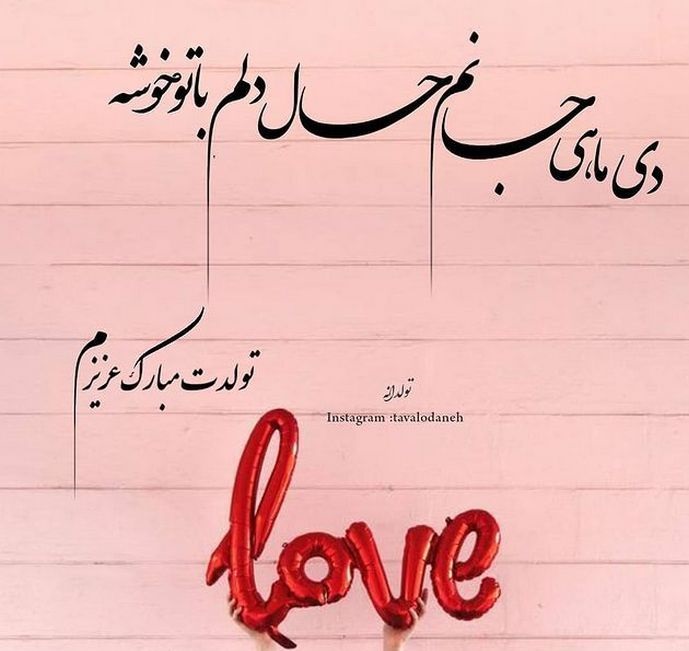 دی ماهی جانم حال دلم با تو خوشه
تولدت مبارک عزیزم
تولدانه
Instagram :tavalodaneh
love